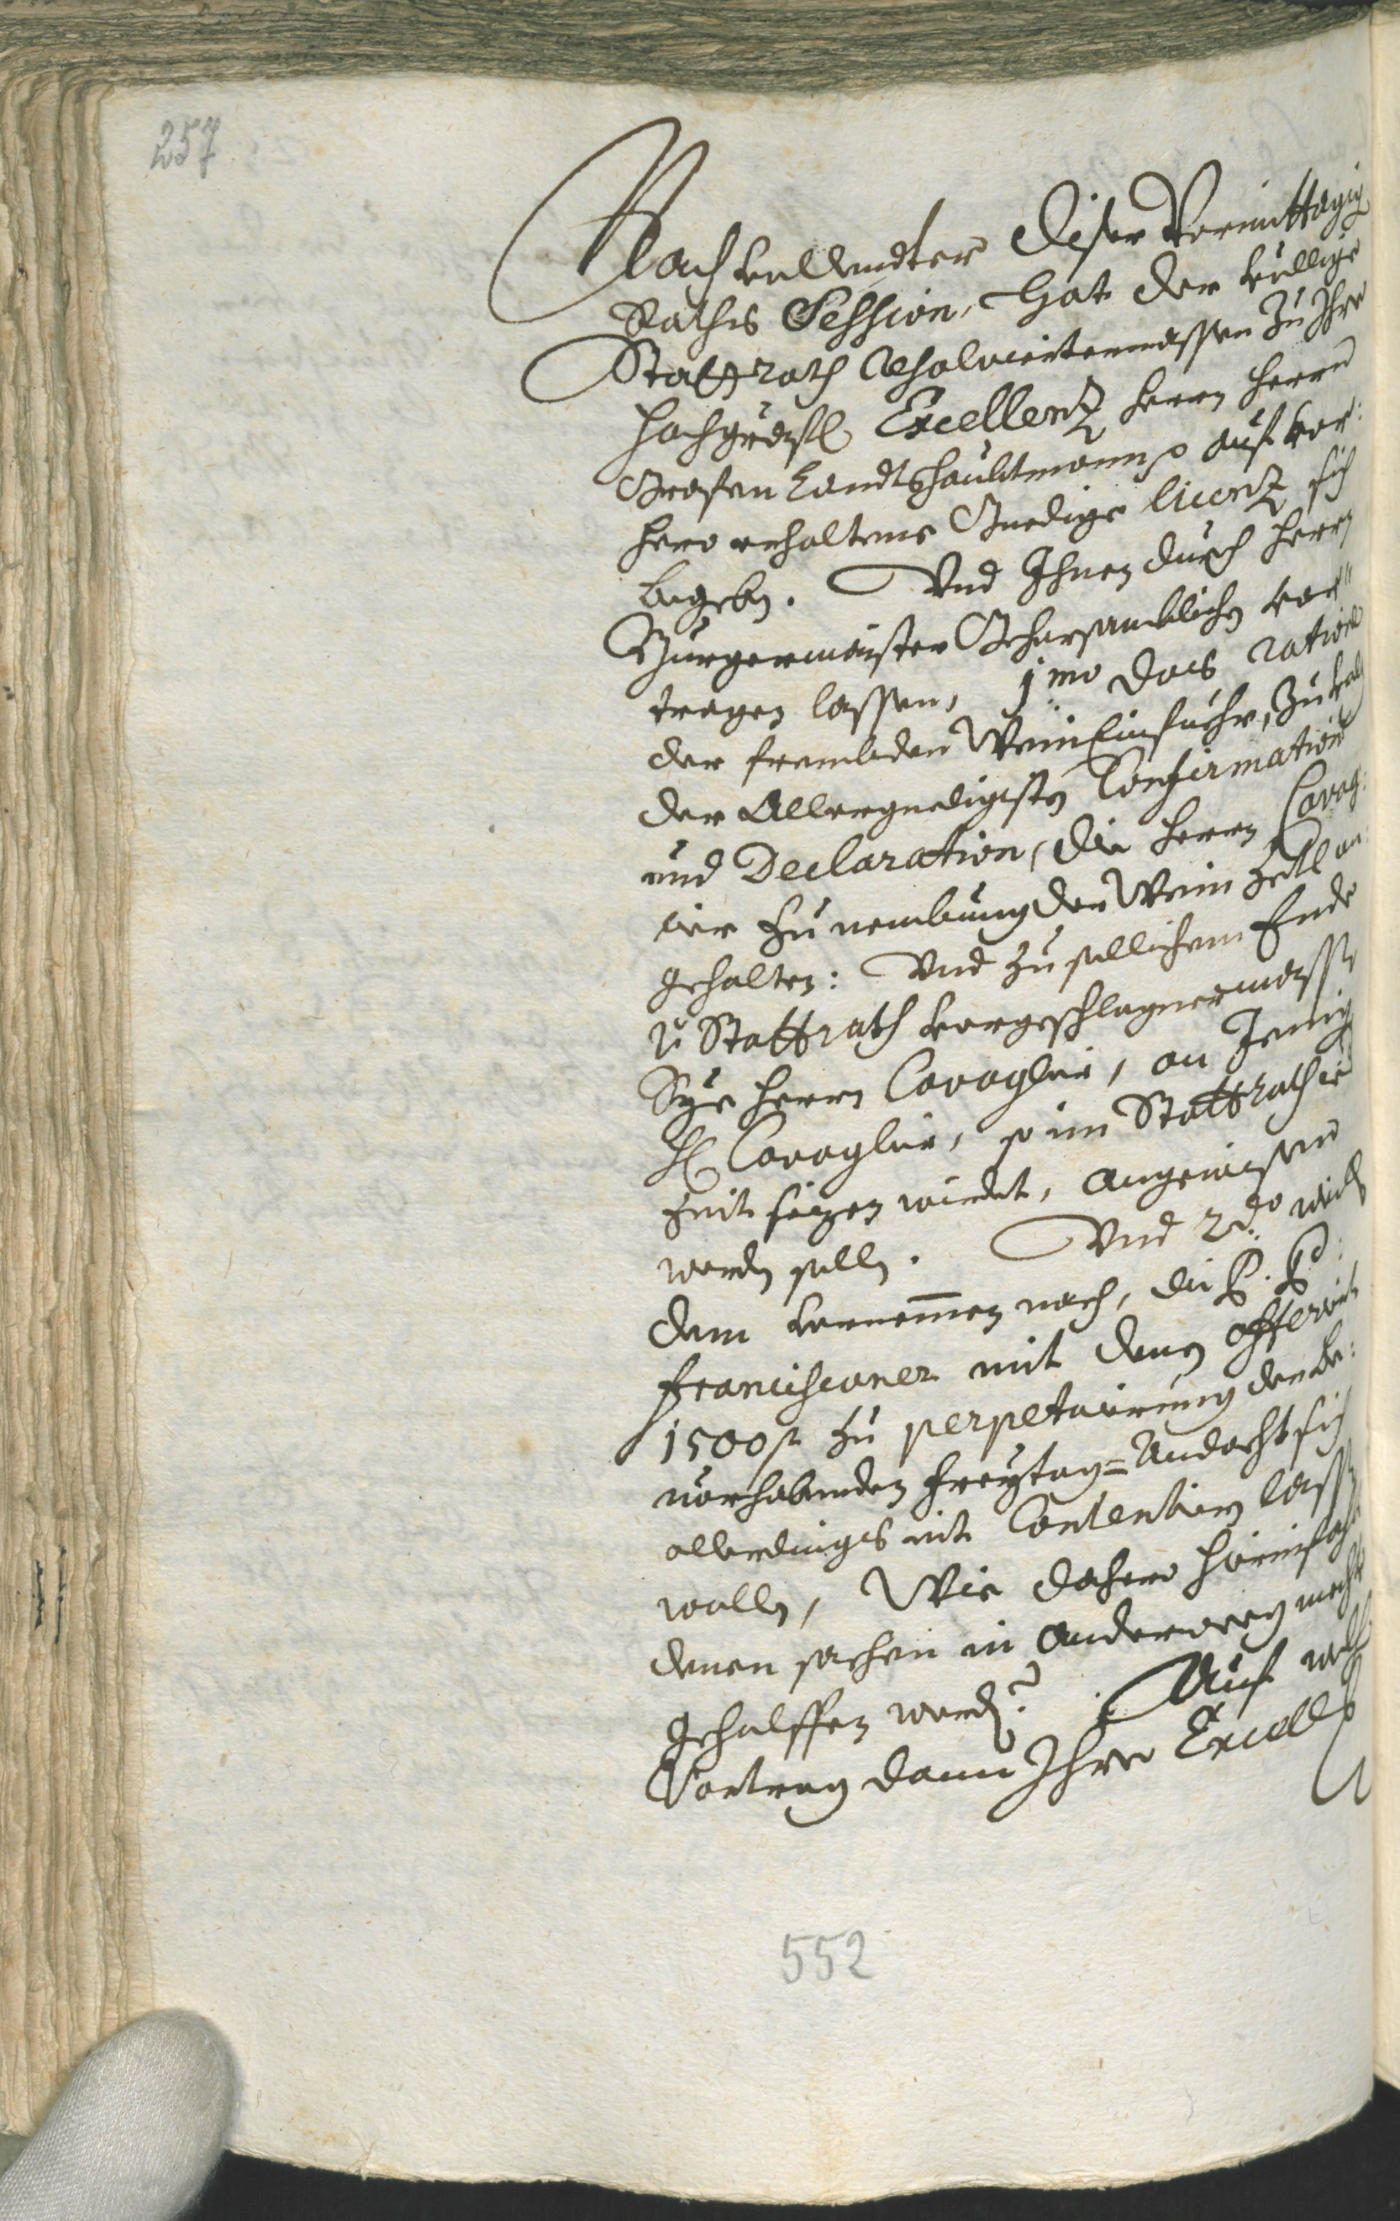 257
Nach vollendter diser Vormittägig
Raths Session, Hat der völlige
Stattrath resolviertermassen zu Ihro
Hochgräfl Excellenz Herrn Herrn
Grafen Landtshaubtmann auf vor:
hero erhaltene Gnedige licenz sich
begeben. Und Ihnen durch Herrn
Burgermaister Gehorsamblichen vor
tragen lassen, 1mo das ratione
der frembden WeinEinfuehr, zu
der Allergnedigisten Confirmation
und Declaration, die Herrn Cavag:
lier zu nembung der Wein Zetl an
gehalten: Und zu sollichem Ende
Stattrath vorgeschlagnermasse
Sye Herrn Cavaglier, an Jenige
H Cavaglier, so im Stattrath ie
zeit sizen wirdet, angewisen
werden sollen. Und 2do weill
dem vernemmen nach, die P. P:
Franciscaner mit denen offerirt
1500 f zu perpetuirung der be:
vorhabenden Freytag=Andacht sich
allerdings nit Contentiern lassen
wollen, Wie dahero hierinfahls
denen sachen in anderweeg mechte
geholffen werden? Auf
Vortrag dann Ihro Excell
552